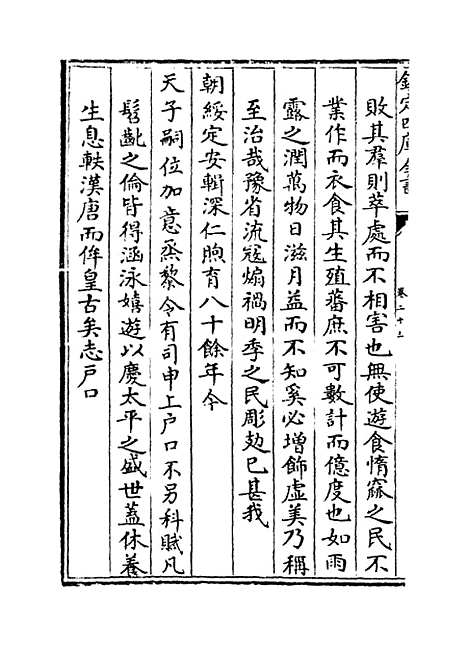 欽定四庫全書
卷二十三
敗其羣則萃處而不相害也無使遊食惰窳之民不
業作而衣食其生殖蕃庶不可數計而億度也如雨
露之潤萬物日滋月益而不知奚必增飾虛美乃稱
至治哉豫省流冦煽禍明季之民彫劾已甚我
朝綏定安輯深仁煦育八十餘年今
天子嗣位加意烝黎令有司申上户口不另科賦凡
髫齔之倫皆得涵泳嬉遊以慶太平之盛世蓋休養
生息軼漢唐而侔皇古矣志户口